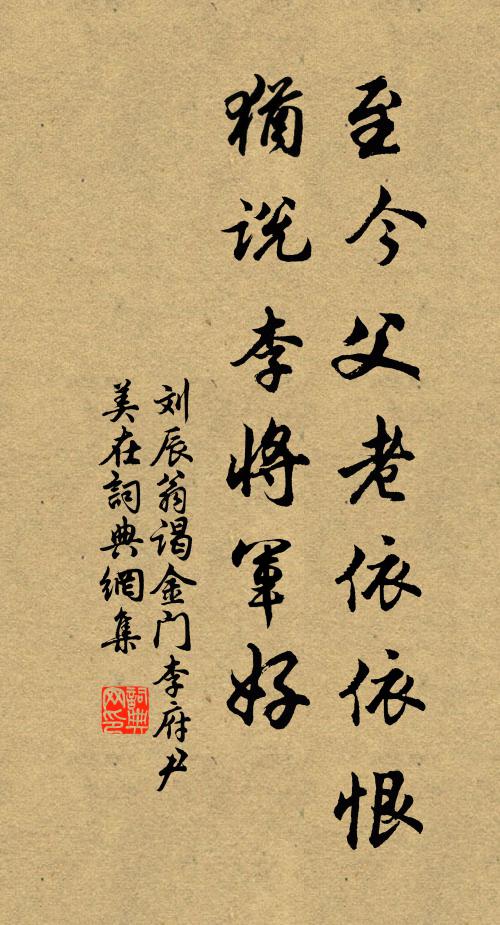 至今父老依依恨
猶说李将軍好
刘辰翁谒金门李府尹
美在詞典網集
詞典网印